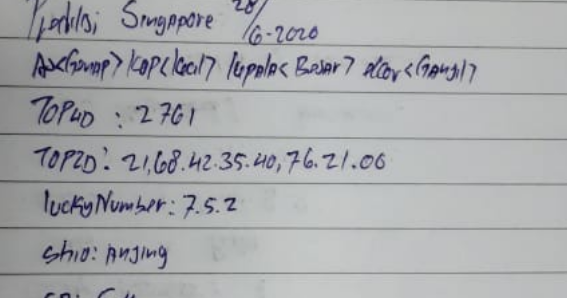 Prediksi Singapore 28/6-2020
As<Genap> KOP<Kecil> Kepala<Besar> ekor<Ganjil>
TOP4D : 2761
TOP2D : 21,68.42.35.40,76.21.06
luckyNumber : 7.5.2
Shio : Anjing